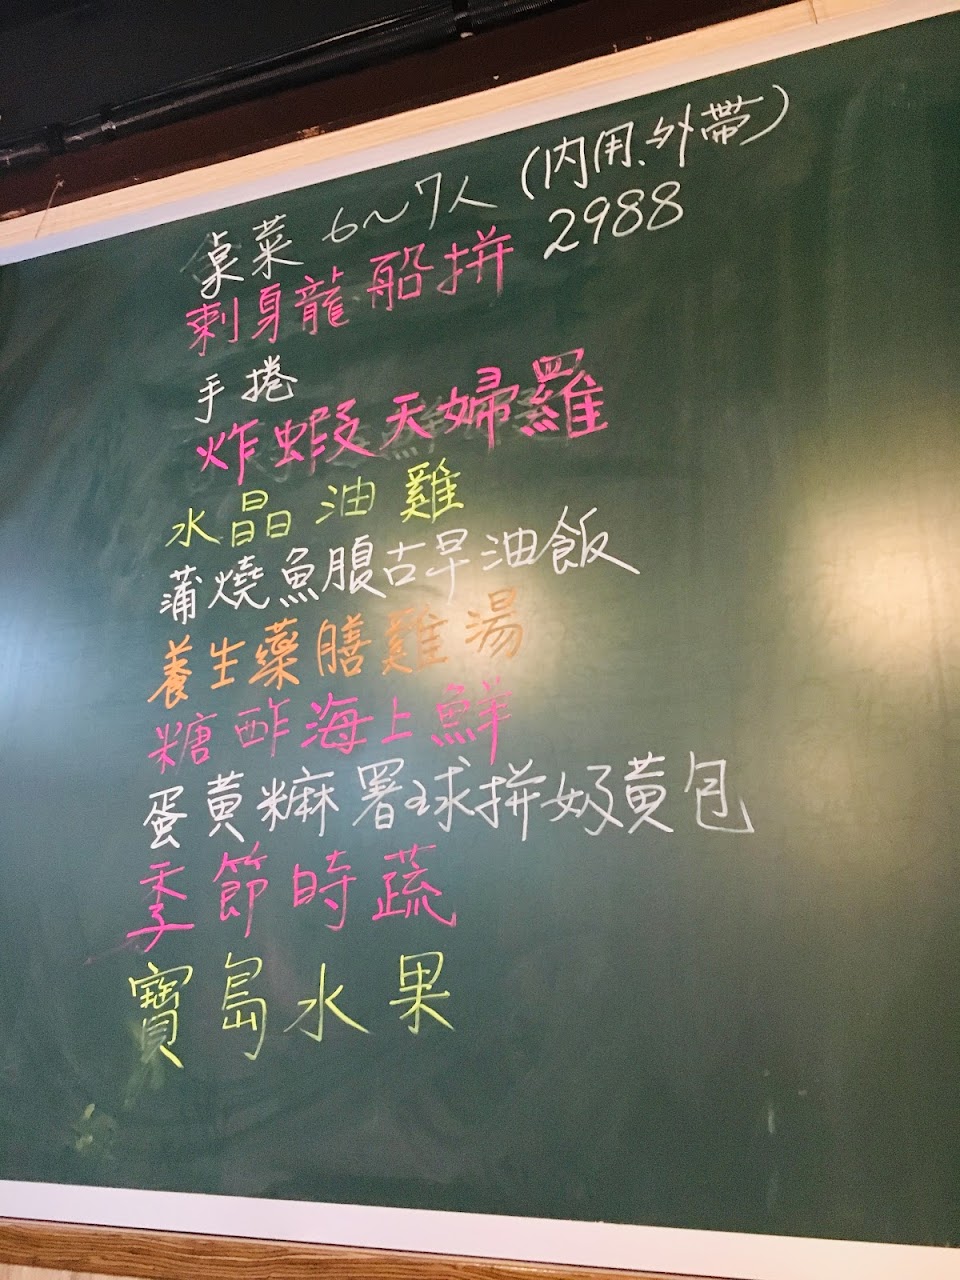 桌菜 6~7人 (內用、外帶)
2988
刺身龍船拼
手捲
炸蝦天婦羅
水晶油雞
蒲燒魚腹古早油飯
養生藥膳雞湯
糖酢海上鮮
蛋黃糜署球拼奶黃包
季節時蔬
寶島水果